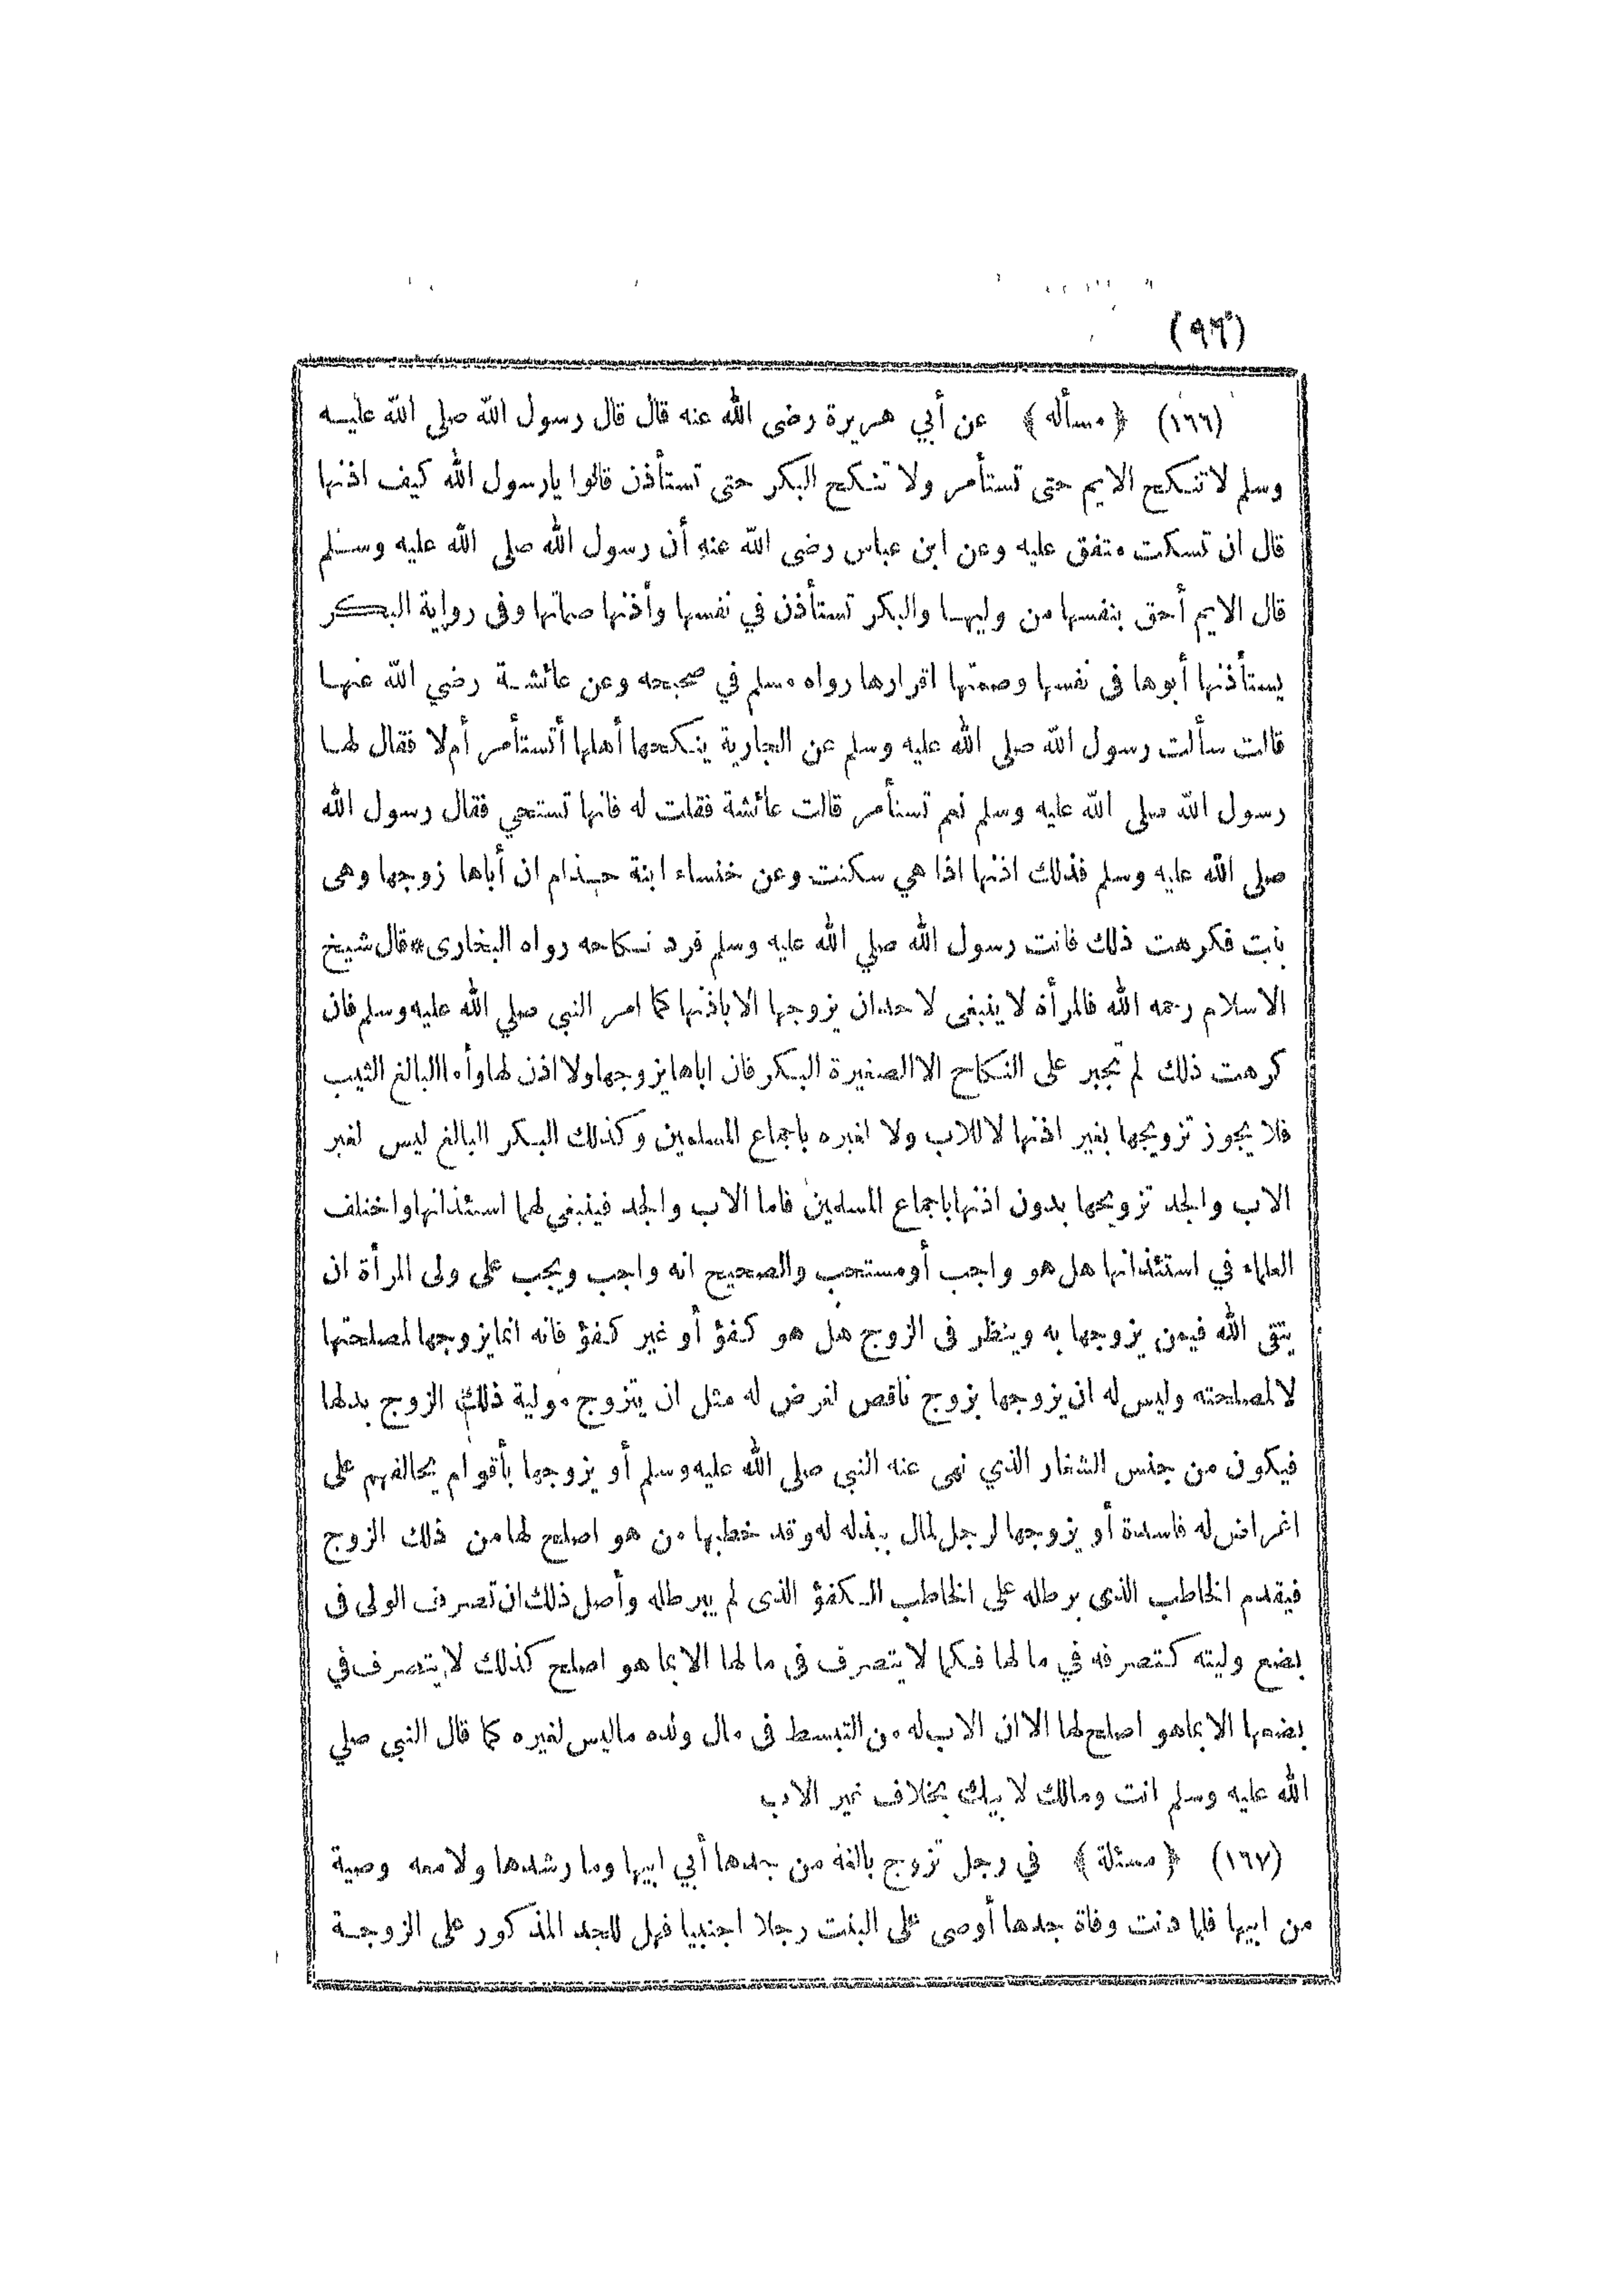 (٩٦)
(١٦٦) ﴿مسألة﴾ عن أبي هريرة رضى الله عنه قال قال رسول الله صلى الله عليه
وسلم لا تنكح الايم حتى تستأمر ولا تنكح البكر حتى تستأذن قالوا يارسول الله كيف اذنها
قال ان تسكت متفق عليه وعن ابن عباس رضى الله عنه أن رسول الله صلى الله عليه وسلم
قال الايم أحق بنفسها من وليها والبكر تستأذن في نفسها وأذنها صماتها وفى رواية البكر
يستأذنها أبوها فى نفسها وصمتها اقرارها رواه مسلم في صحيحه وعن عائشة رضي الله عنها
قالت سألت رسول الله صلى الله عليه وسلم عن الجارية ينكحها أهلها أتستأمر أم لا فقال لها
رسول الله صلى الله عليه وسلم نعم تستأمر قالت عائشة فقلت له فانها تستحي فقال رسول الله
صلى الله عليه وسلم فذلك اذنها اذا هي سكتت وعن خنساء ابنة حذام ان أباها زوجها وهى
بنت فكرهت ذلك فاتت رسول الله صلي الله عليه وسلم فرد نكاحه رواه البخارى*قال شيخ
الاسلام رحمه الله فالمرأة لا ينبغى لاحد ان يزوجها الا باذنها كما امر النبي صلي الله عليه وسلم فان
كرهت ذلك لم تجبر على النكاح الا الصغيرة البكر فان اباها يزوجها ولا اذن لها وأما البالغ الثيب
فلا يجوز تزويجها بغير اذنها لا للاب ولا لغيره باجماع المسلمين وكذلك البكر البالغ ليس لغير
الاب والجد تزويجها بدون اذنها باجماع المسلمين فاما الاب والجد فينبغي لهما استئذانها واختلف
العلماء في استئذانها هل هو واجب أو مستحب والصحيح انه واجب ويجب على ولى المرأة ان
يتقى الله فيمن يزوجها به وينظر فى الزوج هل هو كفؤ أو غير كفؤ فانه انما يزوجها لمصلحتها
لا لمصلحته وليس له ان يزوجها بزوج ناقص لغرض له مثل ان يتزوج مولية ذلك الزوج بدلها
فيكون من جنس الشغار الذي نهى عنه النبي صلى الله عليه وسلم أو يزوجها بأقوام يحالفهم على
اغراض له فاسدة أو يزوجها لرجل لمال يبذله له وقد خطبها من هو اصلح لها من ذلك الزوج
فيقدم الخاطب الذى برطله على الخاطب الكفؤ الذى لم يبرطله وأصل ذلك ان تصرف الولى فى
بضع وليته كتصرفه في مالها فكما لا يتصرف فى مالها الا بما هو اصلح كذلك لا يتصرف في
بضعها الا بما هو اصلح لها الا ان الاب له من التبسط فى مال ولده ما ليس لغيره كما قال النبي صلي
الله عليه وسلم انت ومالك لابيك بخلاف غير الاب
(١٦٧) ﴿مسئلة﴾ في رجل تزوج بالغة من جدها أبي ابيها وما رشدها ولا معه وصية
من ابيها فلما دنت وفاة جدها أوصى على البنت رجلا اجنبيا فهل للجد المذكور على الزوجة